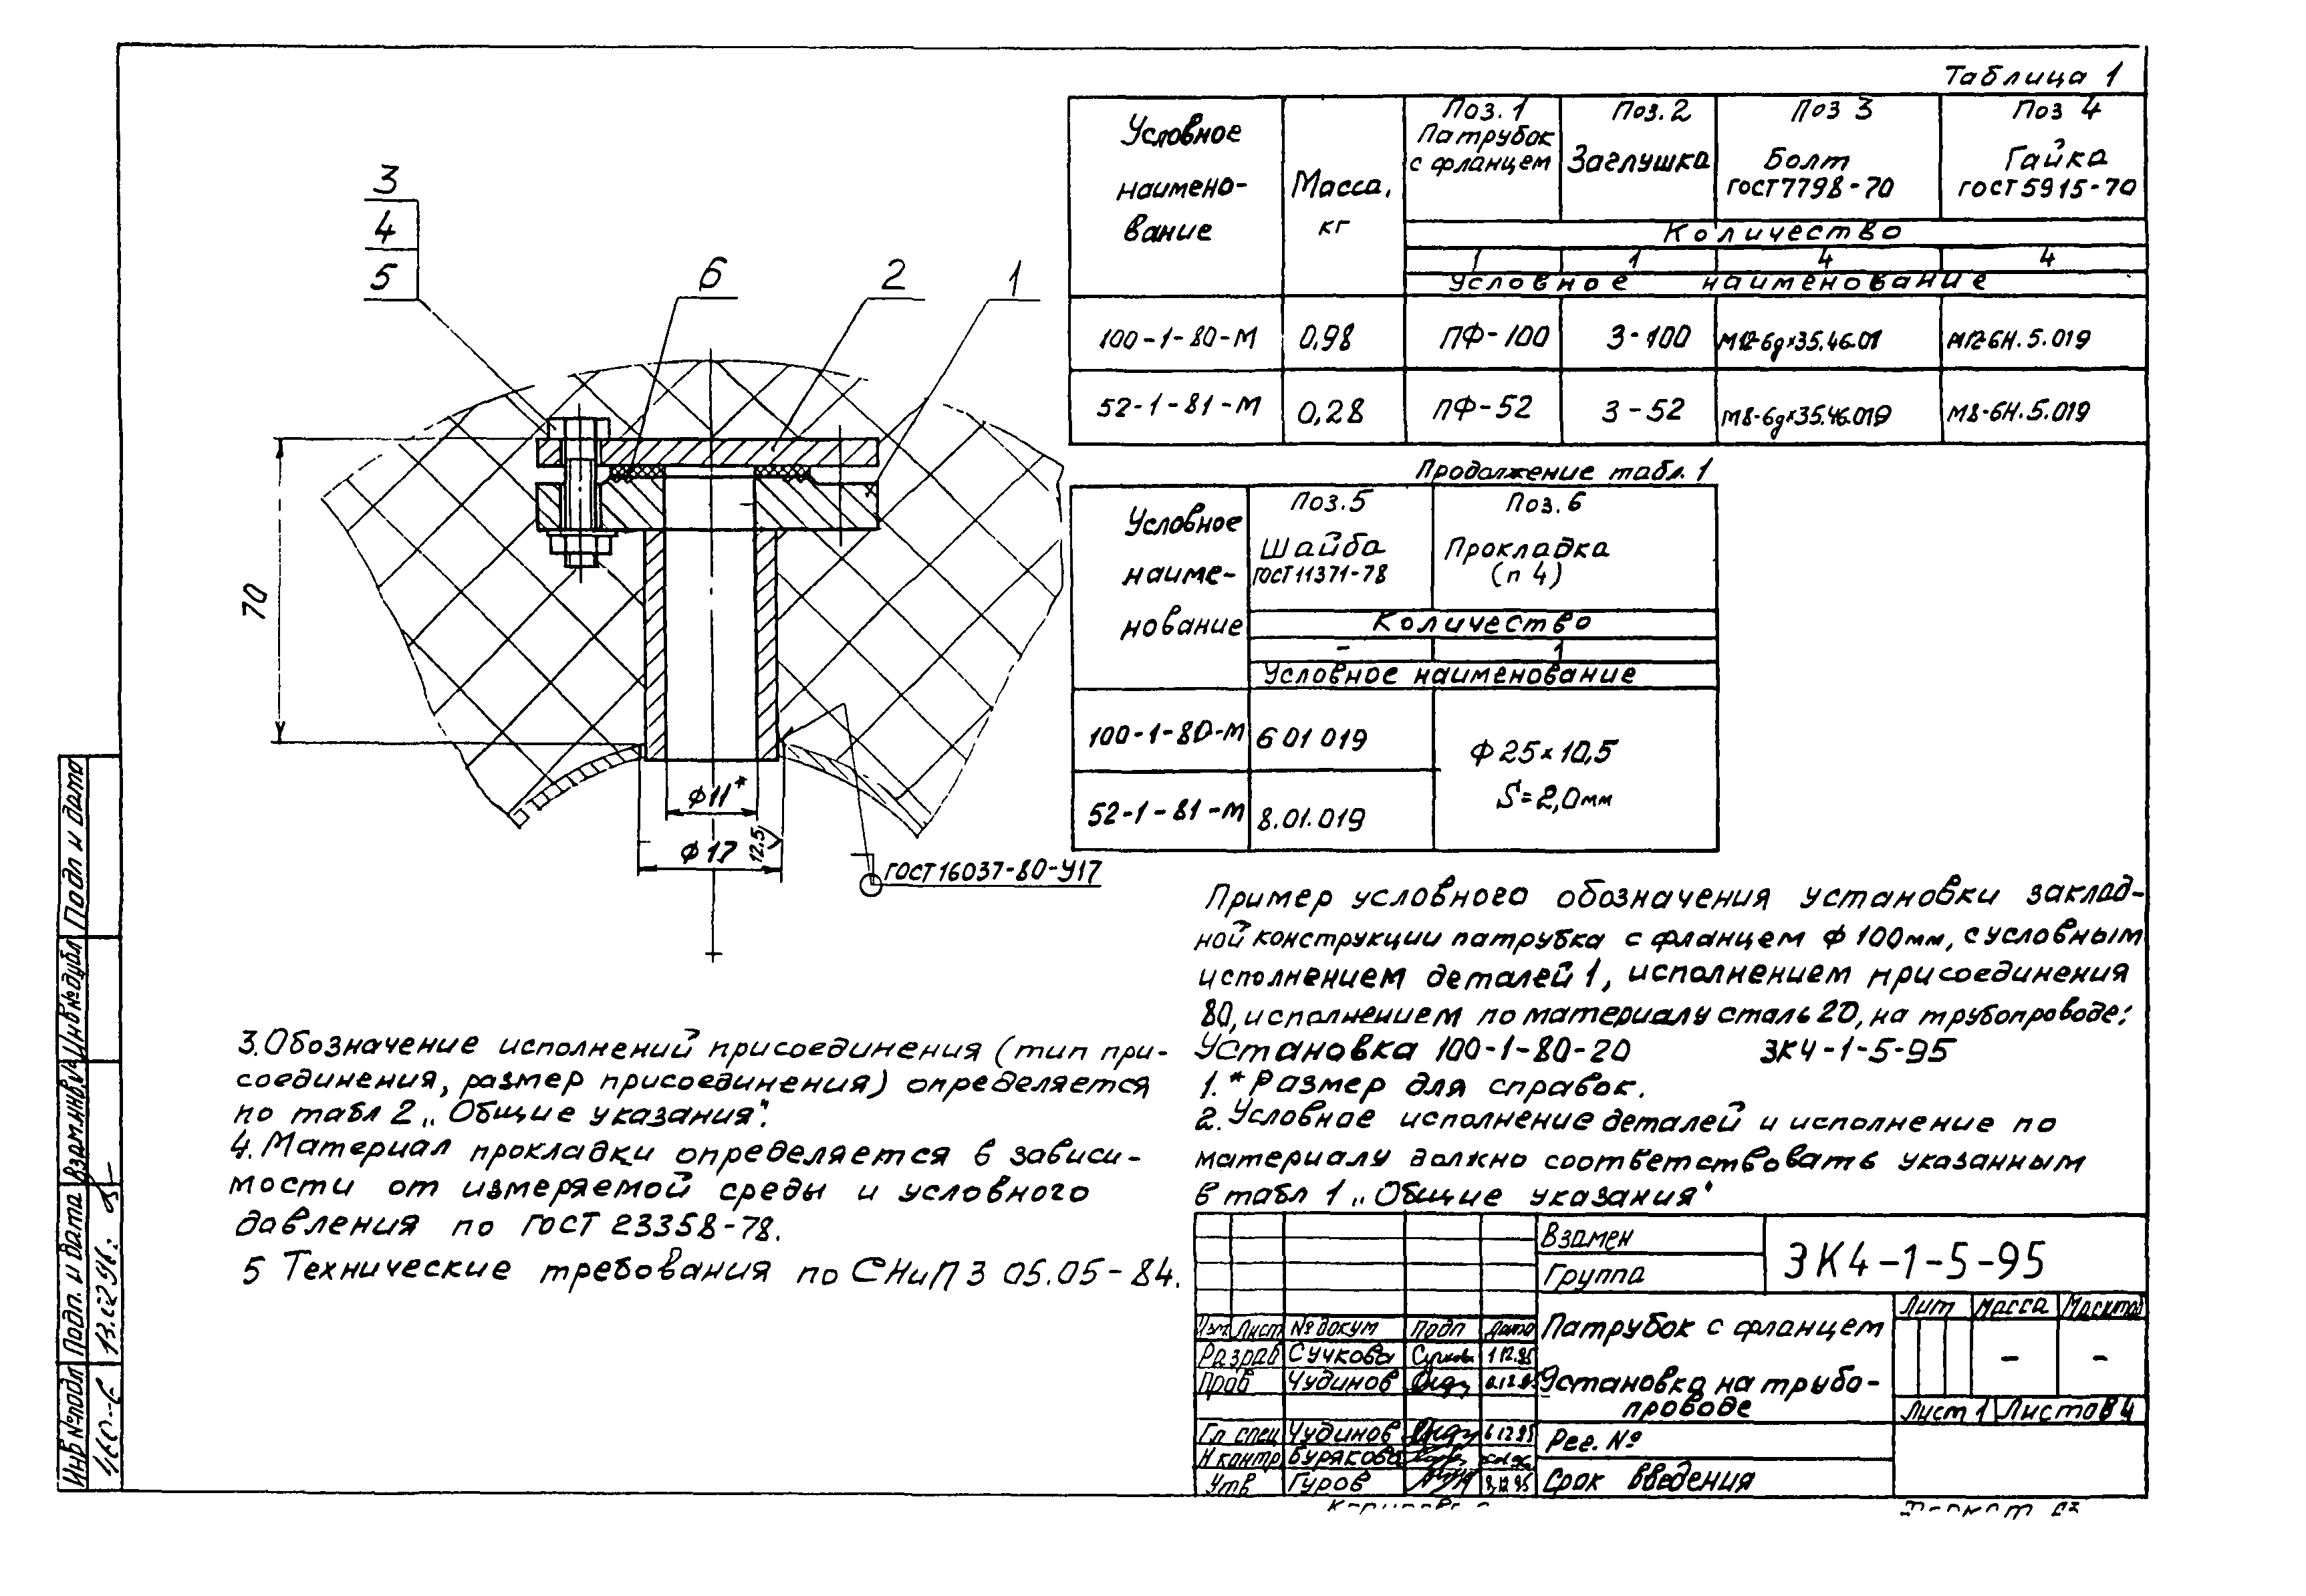 Таблица 1
Условное наимено-вание
Масса, кг
Поз.1 Патрубок с фланцем
Поз.2 Заглушка
Поз 3 Болт ГОСТ7798-70
Поз 4 Гайка ГОСТ5915-70
Количество
1 1 4 4
Условное наименование
100-1-80-М 0,98 ПФ-100 З-100 М12-6g×35.46.01 М12-6Н.5.019
52-1-81-М 0,28 ПФ-52 З-52 М8-6g×35.46.019 М8-6Н.5.019
Продолжение табл. 1
Условное наиме-нование
Поз.5 Шайба ГОСТ11371-78
Поз.6 Прокладка (п 4)
Количество
- 1
Условное наименование
100-1-80-М 6 01 019
52-1-81-М 8.01.019
Ф25×10,5
S=2,0мм
3
4
5
6
2
1
70
ф11*
ф17
12.5
ГОСТ16037-80-У17
Пример условного обозначения установки заклад-
ной конструкции патрубка с фланцем ф 100мм, с условным
исполнением деталей 1, исполнением присоединения
80, исполнением по материалу сталь 20, на трубопроводе:
Установка 100-1-80-20 ЗК4-1-5-95
1.* Размер для справок.
2. Условное исполнение деталей и исполнение по
материалу должно соответствовать указанным
в табл 1 „Общие указания"
3. Обозначение исполнений присоединения (тип при-
соединения, размер присоединения) определяется
по табл 2 „Общие указания".
4. Материал прокладки определяется в зависи-
мости от измеряемой среды и условного
давления по ГОСТ 23358-78.
5 Технические требования по СНиП 3 05.05-84.
Взамен
Группа
ЗК4-1-5-95
Изм Лист № докум Подп Дата
Разраб Сучкова 1 12.95
Пров Чудинов
Гл спец Чудинов 6 12 95
Н контр Бурякова
Утв Гуров
Патрубок с фланцем
Установка на трубо-
проводе
Лит Масса Масштаб
- -
Лист 1 Листов 4
Рег. №
Срок введения
Инв № подл Подп. и дата Взам.инв № Инв № дубл Подп и дата